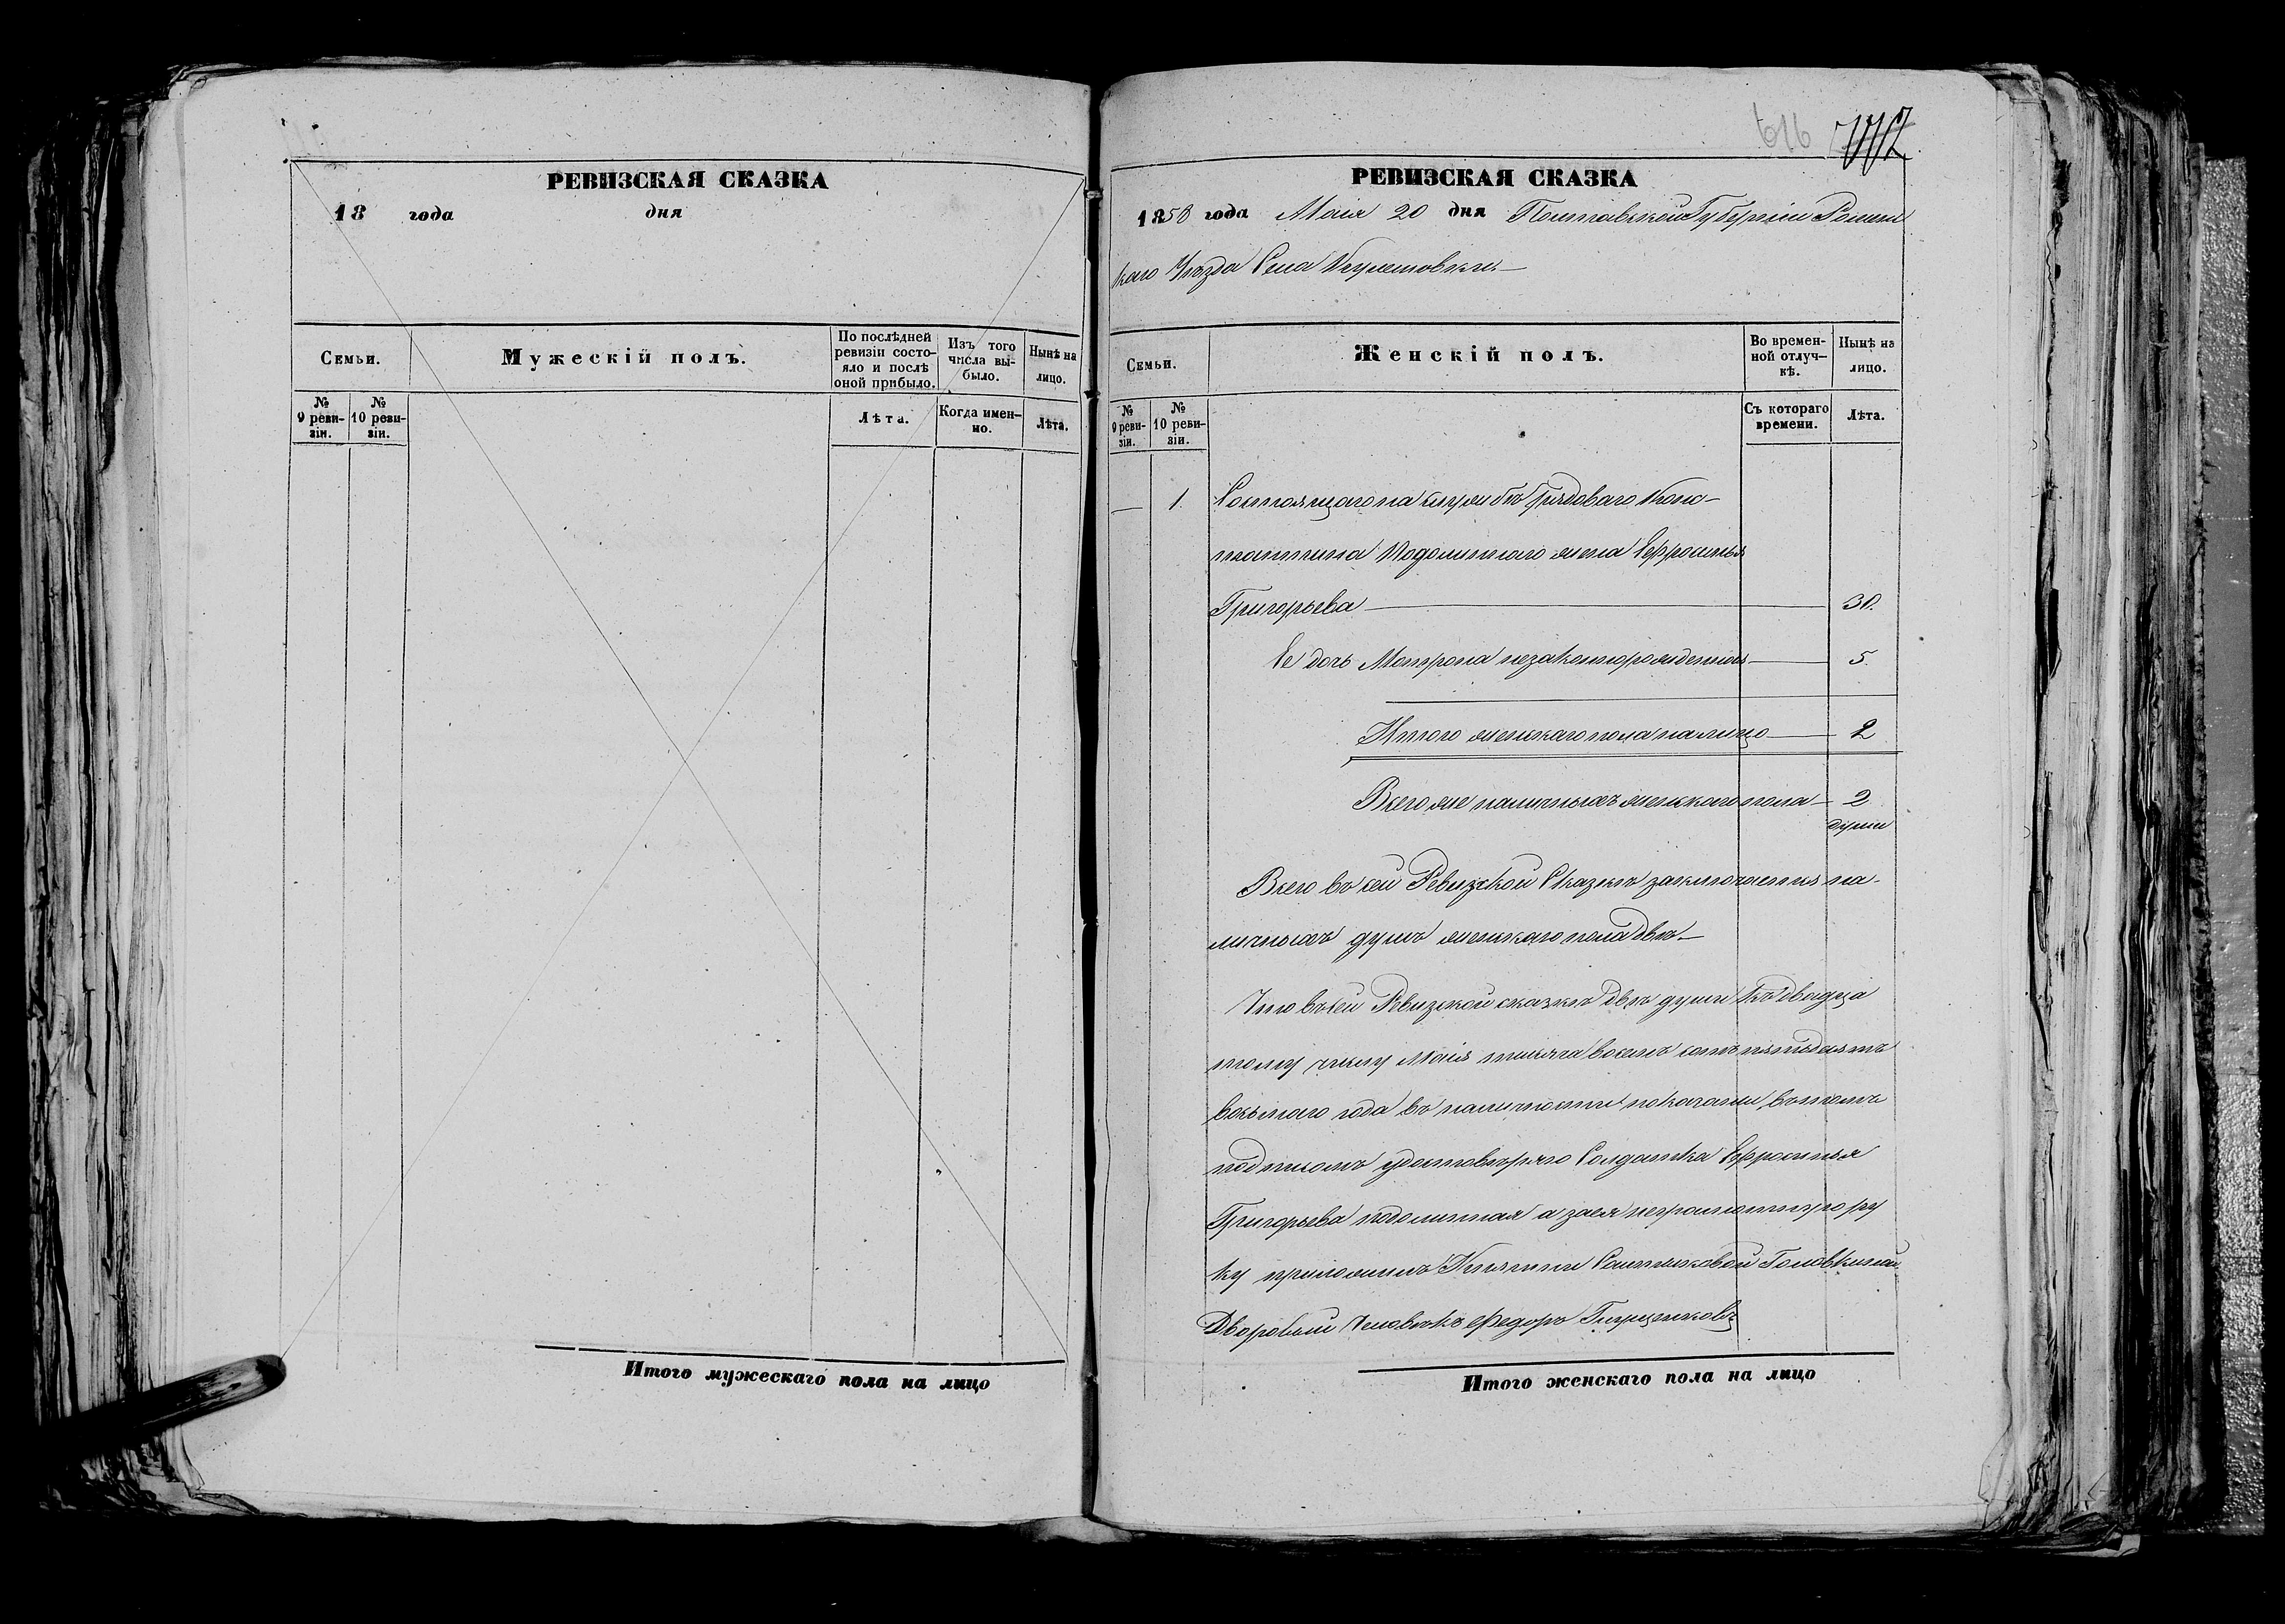 РЕВИЗСКАЯ СКАЗКА
18 года дня
Семьи.
Мужескій полъ.
По послѣдней ревизіи состояло и послѣ оной прибыло.
Изъ того числа выбыло.
Нынѣ на лицо.
№ 9 ревизіи.
№ 10 ревизіи.
Лѣта.
Когда именно.
Лѣта.
Итого мужескаго пола на лицо
616
РЕВИЗСКАЯ СКАЗКА
1858 года Маія 20 дня Полтавской Губерніи Ромен
скаго Уѣзда Села
Семьи.
Женскій полъ.
Во временной отлучкѣ.
Нынѣ на лицо.
№ 9 ревизіи.
№ 10 ревизіи.
Съ котораго времени.
Лѣта.
— 1. Состоящаго на службѣ Рядоваго Конс-
тантина Подолиннаго жена Ефросинья
Григорьева — 30.
Ее дочь Мотрона незаконнорожденная — 5.
Итого женскаго пола на лицо — 2
Всего же наличныхъ женскаго пола — 2
души
Всего въ сей Ревизской Сказкѣ заключается на-
личныхъ душъ женскаго пола двѣ —
Что въ сей Ревизской сказкѣ двѣ души къ двадца
тому числу Маія тысяча восемъ сотъ пятьдесятъ
восьмаго года въ наличности показаны въ томъ
подписомъ удостовѣряю Солдатка Ефросинья
Григорьева Подолинная а за ея неграмотную ру
ку приложилъ Княгини Салтыковой Головкиной
Дворовый Человѣкъ Федоръ
Итого женскаго пола на лицо